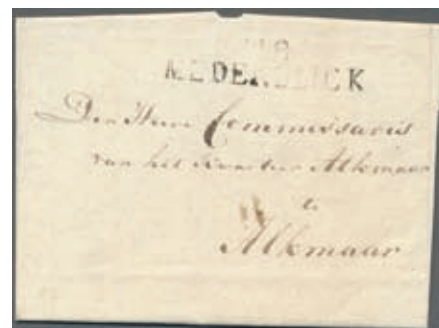 118
MEDENBLICK
Den Heere Commissaris
van het Kwartier Alkmaar
te
Alkmaar